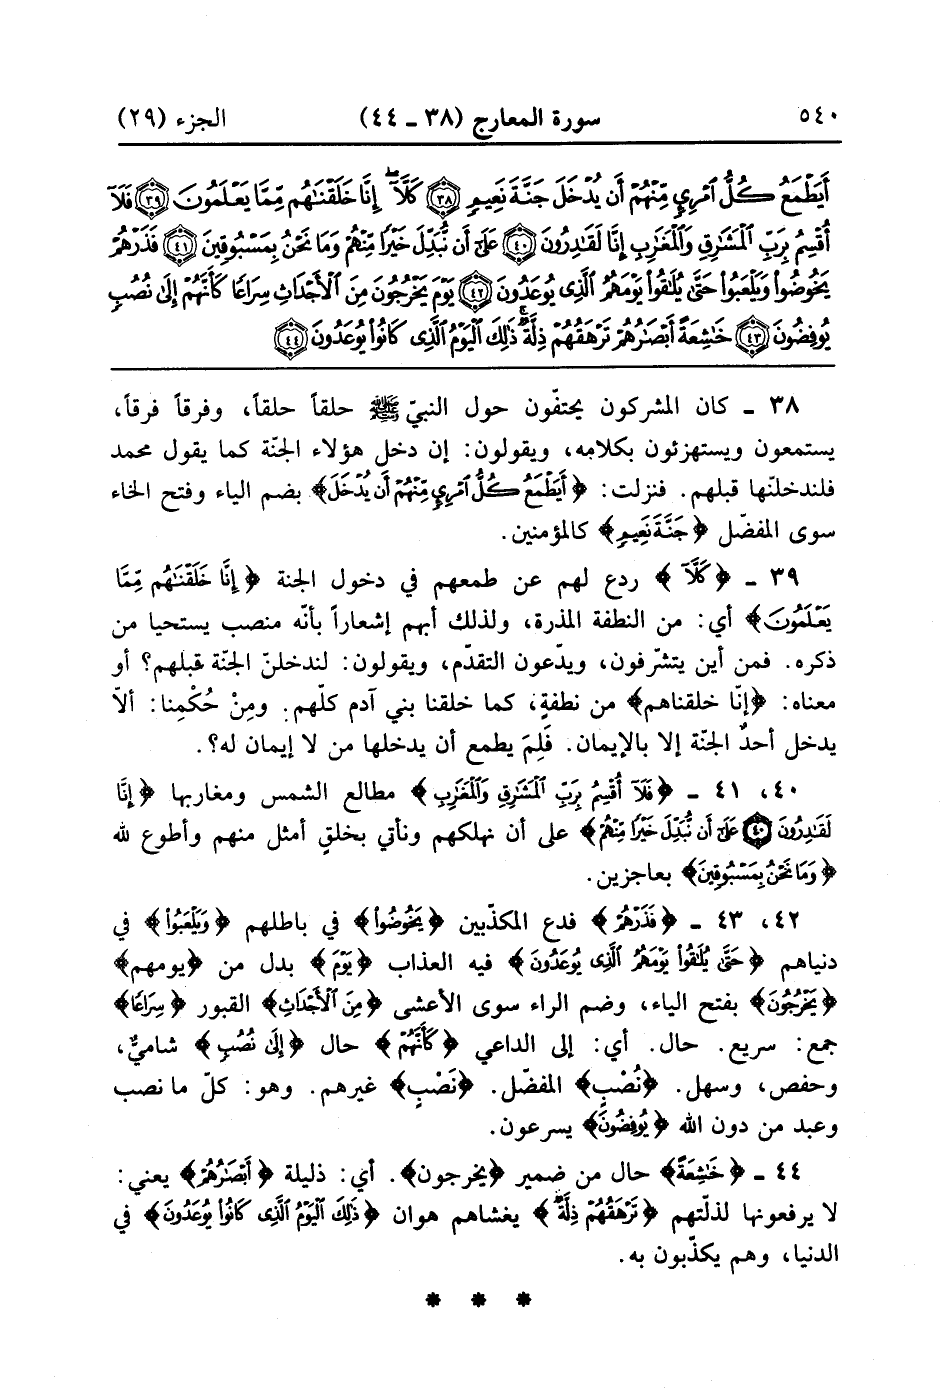 ٥٤٠ سورة المعارج (٣٨ ـ ٤٤) الجزء (٢٩)
أَيَطْمَعُ كُلُّ ٱمْرِئٍ مِّنْهُمْ أَن يُدْخَلَ جَنَّةَ نَعِيمٍ ﴿٣٨﴾ كَلَّآ ۖ إِنَّا خَلَقْنَٰهُم مِّمَّا يَعْلَمُونَ ﴿٣٩﴾ فَلَآ
أُقْسِمُ بِرَبِّ ٱلْمَشَٰرِقِ وَٱلْمَغَٰرِبِ إِنَّا لَقَٰدِرُونَ ﴿٤٠﴾ عَلَىٰٓ أَن نُّبَدِّلَ خَيْرًا مِّنْهُمْ وَمَا نَحْنُ بِمَسْبُوقِينَ ﴿٤١﴾ فَذَرْهُمْ
يَخُوضُوا۟ وَيَلْعَبُوا۟ حَتَّىٰ يُلَٰقُوا۟ يَوْمَهُمُ ٱلَّذِى يُوعَدُونَ ﴿٤٢﴾ يَوْمَ يَخْرُجُونَ مِنَ ٱلْأَجْدَاثِ سِرَاعًا كَأَنَّهُمْ إِلَىٰ نُصُبٍ
يُوفِضُونَ ﴿٤٣﴾ خَٰشِعَةً أَبْصَٰرُهُمْ تَرْهَقُهُمْ ذِلَّةٌ ۚ ذَٰلِكَ ٱلْيَوْمُ ٱلَّذِى كَانُوا۟ يُوعَدُونَ ﴿٤٤﴾
٣٨ ـ كان المشركون يحتفّون حول النبيّ ﷺ حلقاً حلقاً، وفرقاً فرقاً،
يستمعون ويستهزئون بكلامه، ويقولون: إن دخل هؤلاء الجنّة كما يقول محمد
فلندخلنّها قبلهم. فنزلت: ﴿أَيَطْمَعُ كُلُّ ٱمْرِئٍ مِّنْهُمْ أَن يُدْخَلَ﴾ بضم الياء وفتح الخاء
سوى المفضّل ﴿جَنَّةَ نَعِيمٍ﴾ كالمؤمنين.
٣٩ ـ ﴿كَلَّآ﴾ ردع لهم عن طمعهم في دخول الجنة ﴿إِنَّا خَلَقْنَٰهُم مِّمَّا
يَعْلَمُونَ﴾ أي: من النطفة المذرة، ولذلك أبهم إشعاراً بأنّه منصب يستحيا من
ذكره. فمن أين يتشرّفون، ويدّعون التقدّم، ويقولون: لندخلنّ الجنّة قبلهم؟ أو
معناه: ﴿إنّا خلقناهم﴾ من نطفةٍ، كما خلقنا بني آدم كلّهم. ومِنْ حُكْمِنا: ألاّ
يدخل أحدٌ الجنّة إلا بالإيمان. فَلِمَ يطمع أن يدخلها من لا إيمان له؟.
٤٠، ٤١ ـ ﴿فَلَآ أُقْسِمُ بِرَبِّ ٱلْمَشَٰرِقِ وَٱلْمَغَٰرِبِ﴾ مطالع الشمس ومغاربها ﴿إِنَّا
لَقَٰدِرُونَ ﴿٤٠﴾ عَلَىٰٓ أَن نُّبَدِّلَ خَيْرًا مِّنْهُمْ﴾ على أن نهلكهم ونأتي بخلقٍ أمثل منهم وأطوع لله
﴿وَمَا نَحْنُ بِمَسْبُوقِينَ﴾ بعاجزين.
٤٢، ٤٣ ـ ﴿فَذَرْهُمْ﴾ فدع المكذّبين ﴿يَخُوضُوا۟﴾ في باطلهم ﴿وَيَلْعَبُوا۟﴾ في
دنياهم ﴿حَتَّىٰ يُلَٰقُوا۟ يَوْمَهُمُ ٱلَّذِى يُوعَدُونَ﴾ فيه العذاب ﴿يَوْمَ﴾ بدل من ﴿يومهم﴾
﴿يَخْرُجُونَ﴾ بفتح الياء، وضم الراء سوى الأعشى ﴿مِنَ ٱلْأَجْدَاثِ﴾ القبور ﴿سِرَاعًا﴾
جمع: سريع. حال. أي: إلى الداعي ﴿كَأَنَّهُمْ﴾ حال ﴿إِلَىٰ نُصُبٍ﴾ شاميٌّ،
وحفص، وسهل. ﴿نُصْبٍ﴾ المفضّل. ﴿نَصْبٍ﴾ غيرهم. وهو: كلّ ما نصب
وعبد من دون الله ﴿يُوفِضُونَ﴾ يسرعون.
٤٤ ـ ﴿خَٰشِعَةً﴾ حال من ضمير ﴿يخرجون﴾. أي: ذليلة ﴿أَبْصَٰرُهُمْ﴾ يعني:
لا يرفعونها لذلّتهم ﴿تَرْهَقُهُمْ ذِلَّةٌ ۚ﴾ يغشاهم هوان ﴿ذَٰلِكَ ٱلْيَوْمُ ٱلَّذِى كَانُوا۟ يُوعَدُونَ﴾ في
الدنيا، وهم يكذّبون به.
* * *